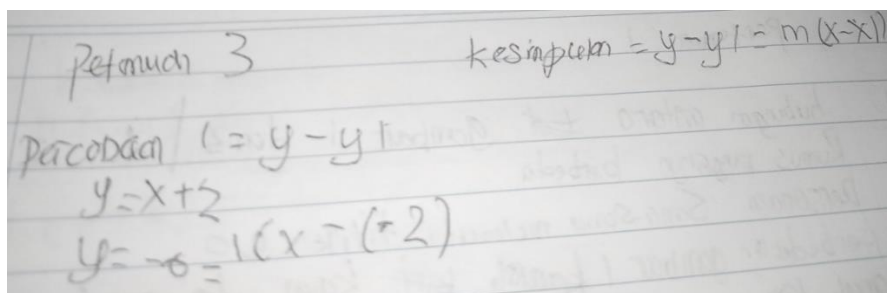 Petmuan 3
Kesimpuan = y-y1 = m(x-x1)
Percobaan 1 = y-y1
y=x+2
y= -0 = 1(x-(-2)